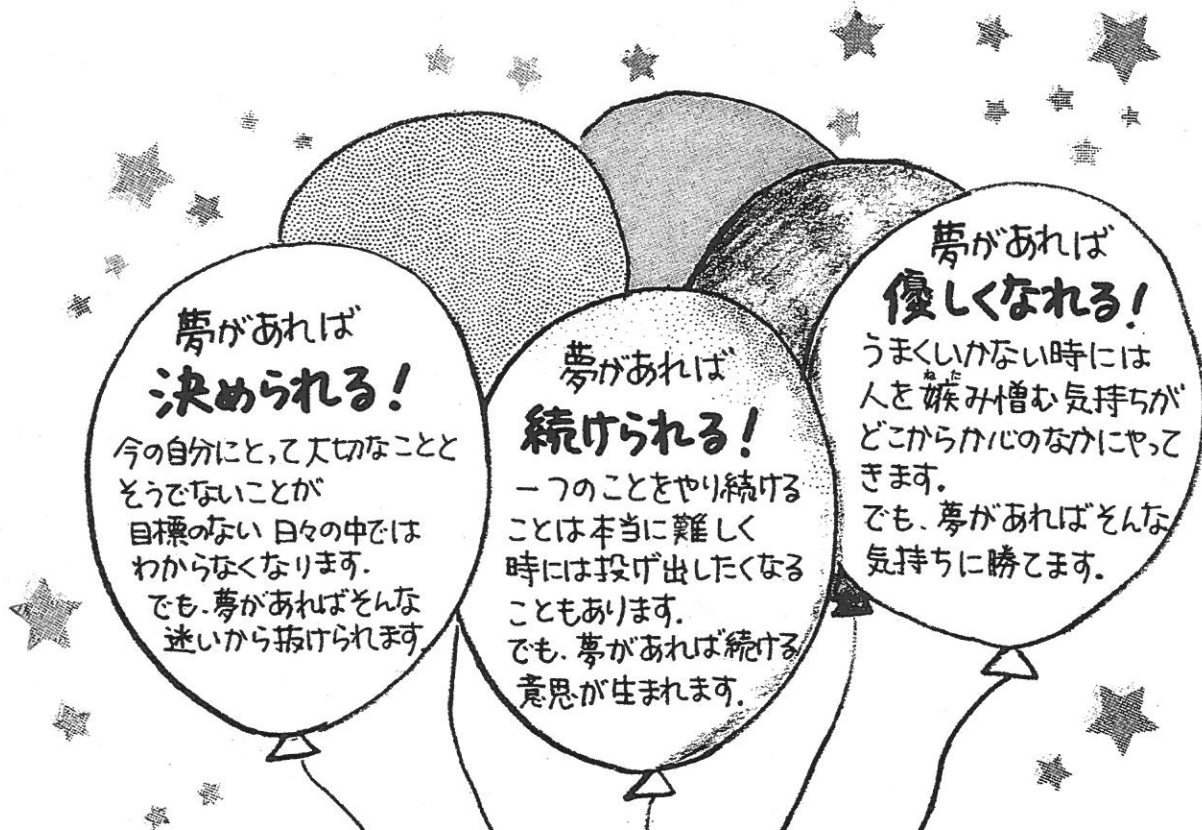 夢があれば
決められる!
今の自分にとって大切なことと
そうでないことが
目標のない日々の中では
わからなくなります.
でも、夢があればそんな
迷いから抜けられます.
夢があれば
続けられる!
一つのことをやり続ける
ことは本当に難しく
時には投げ出したくなる
こともあります.
でも、夢があれば続ける
意思が生まれます.
夢があれば
優しくなれる!
うまくいかない時には
ねた
人を嫉み憎む気持ちが
どこからか心のなかにやって
きます.
でも、夢があればそんな
気持ちに勝てます.